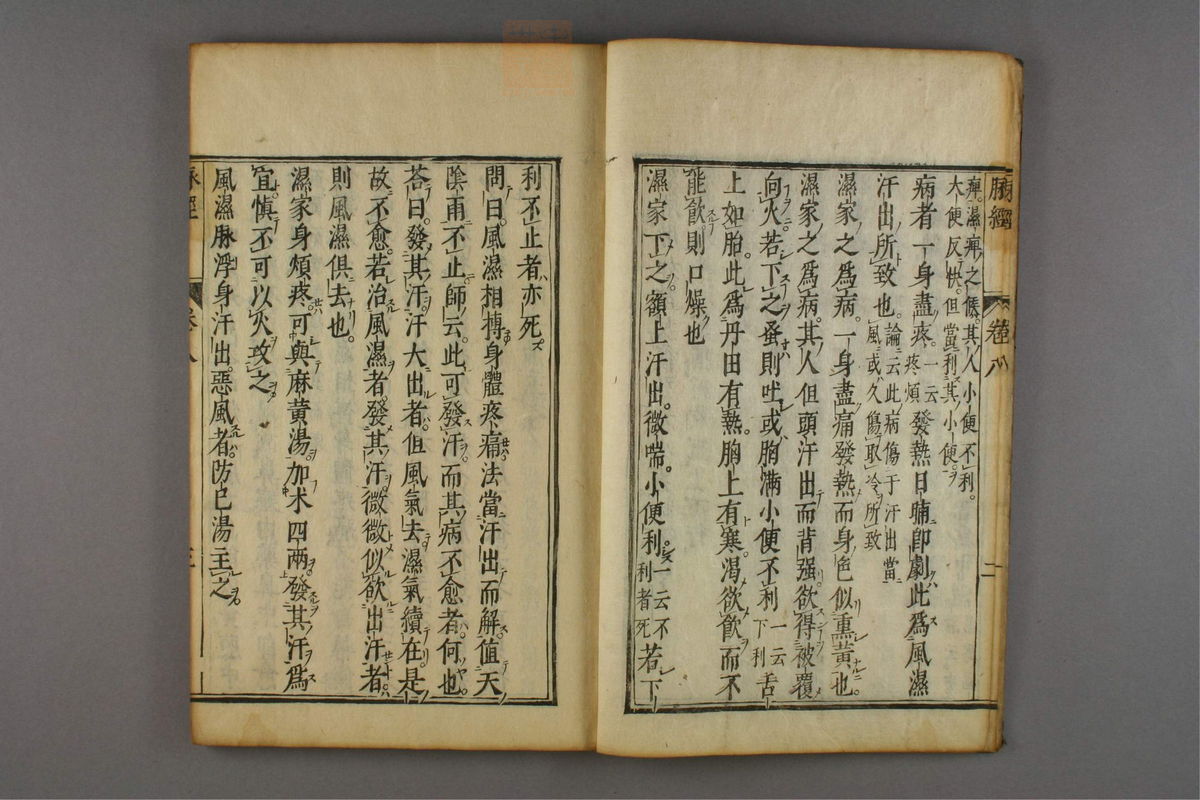 脉經 卷八 二
痺濕痺之候其人小便不利
大便反快但當利其小便
病者一身盡疼一云疼煩發熱日晡即劇此爲風濕
汗出所致也論云此病傷于汗出當風或久傷取冷所致
濕家之爲病一身盡痛發熱而身色似熏黃也
濕家之爲病其人但頭汗出而背强欲得被覆
向火若下之蚤則吐或胸滿小便不利一云下利舌
上如胎此爲丹田有熱胸上有寒渴欲飮而不
能飮則口燥也
濕家下之額上汗出微喘小便利一云不利者死若下
利不止者亦死
問曰風濕相摶身體疼痛法當汗出而解值天
陰雨不止師云此可發汗而其病不愈者何也
荅曰發其汗汗大出者但風氣去濕氣續在是
故不愈若治風濕者發其汗微微似欲出汗者
則風濕俱去也
濕家身煩疼可與麻黃湯加术四兩發其汗爲
宜慎不可以火攻之
風濕脉浮身汗出惡風者防己湯主之